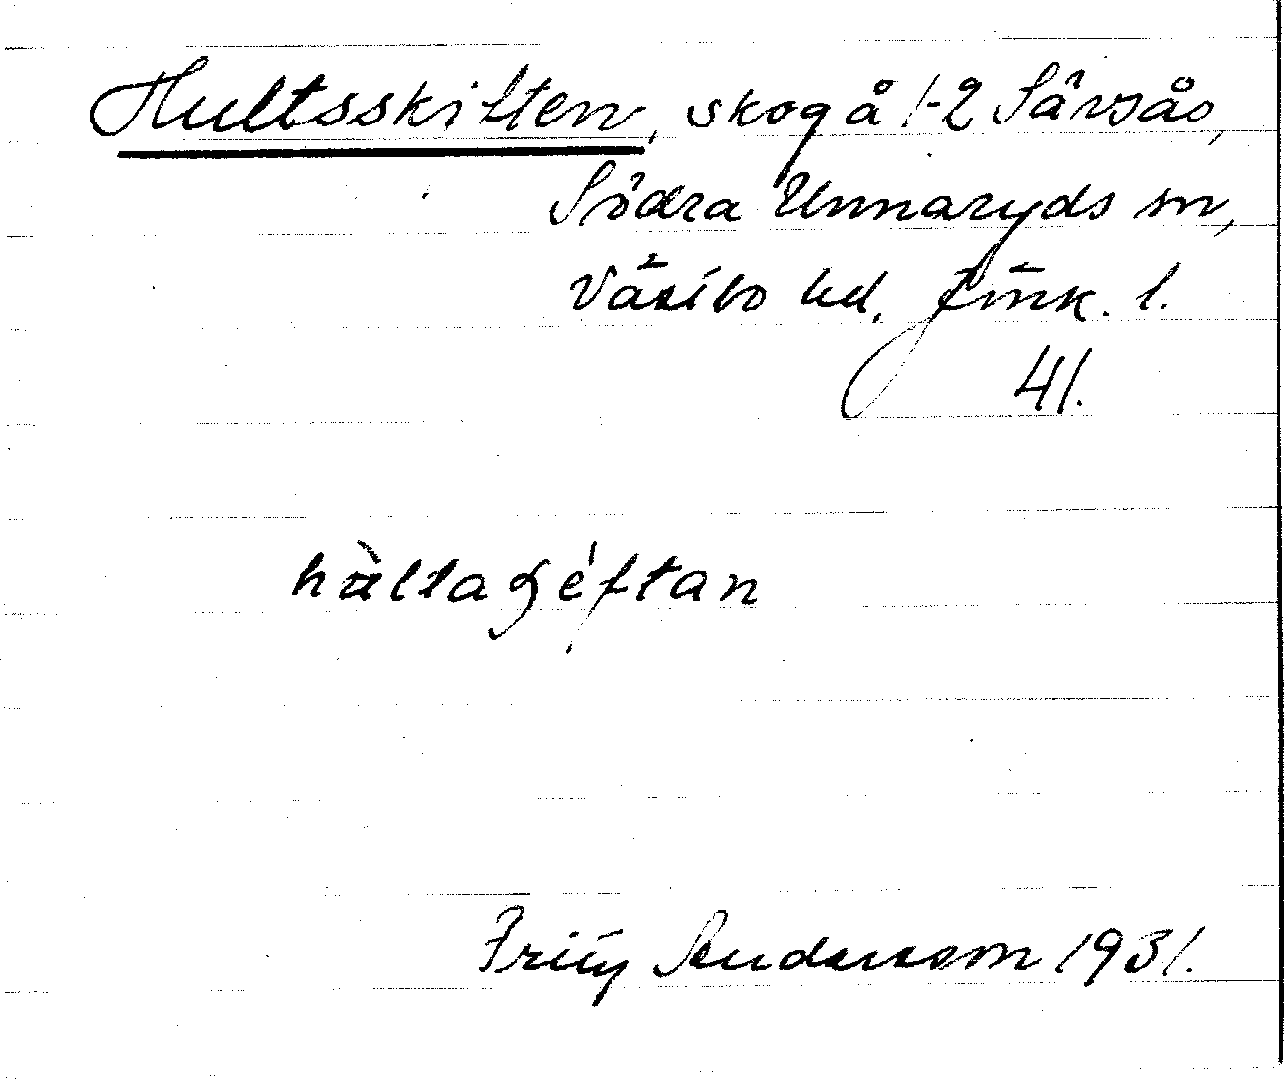 Hultsskiften, skog å 1-2 Särsås,
Södra Unnaryds sn,
Västbo hd, Jönk. l.
41.
Fritz Andersson 1931.